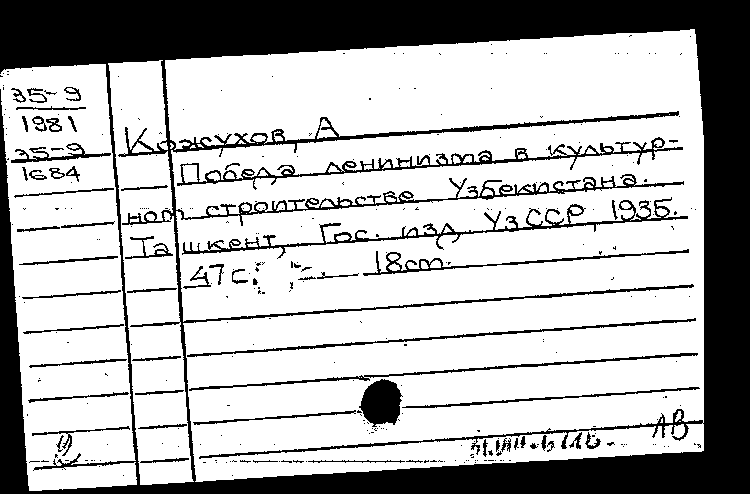 35-9
1981
35-9
1684
Кожухов, А
Победа ленинизма в культур-
ном строительстве Узбекистана.
Ташкент, Гос. изд УзССР, 1935.
47 с. 18 cm.
2
1В